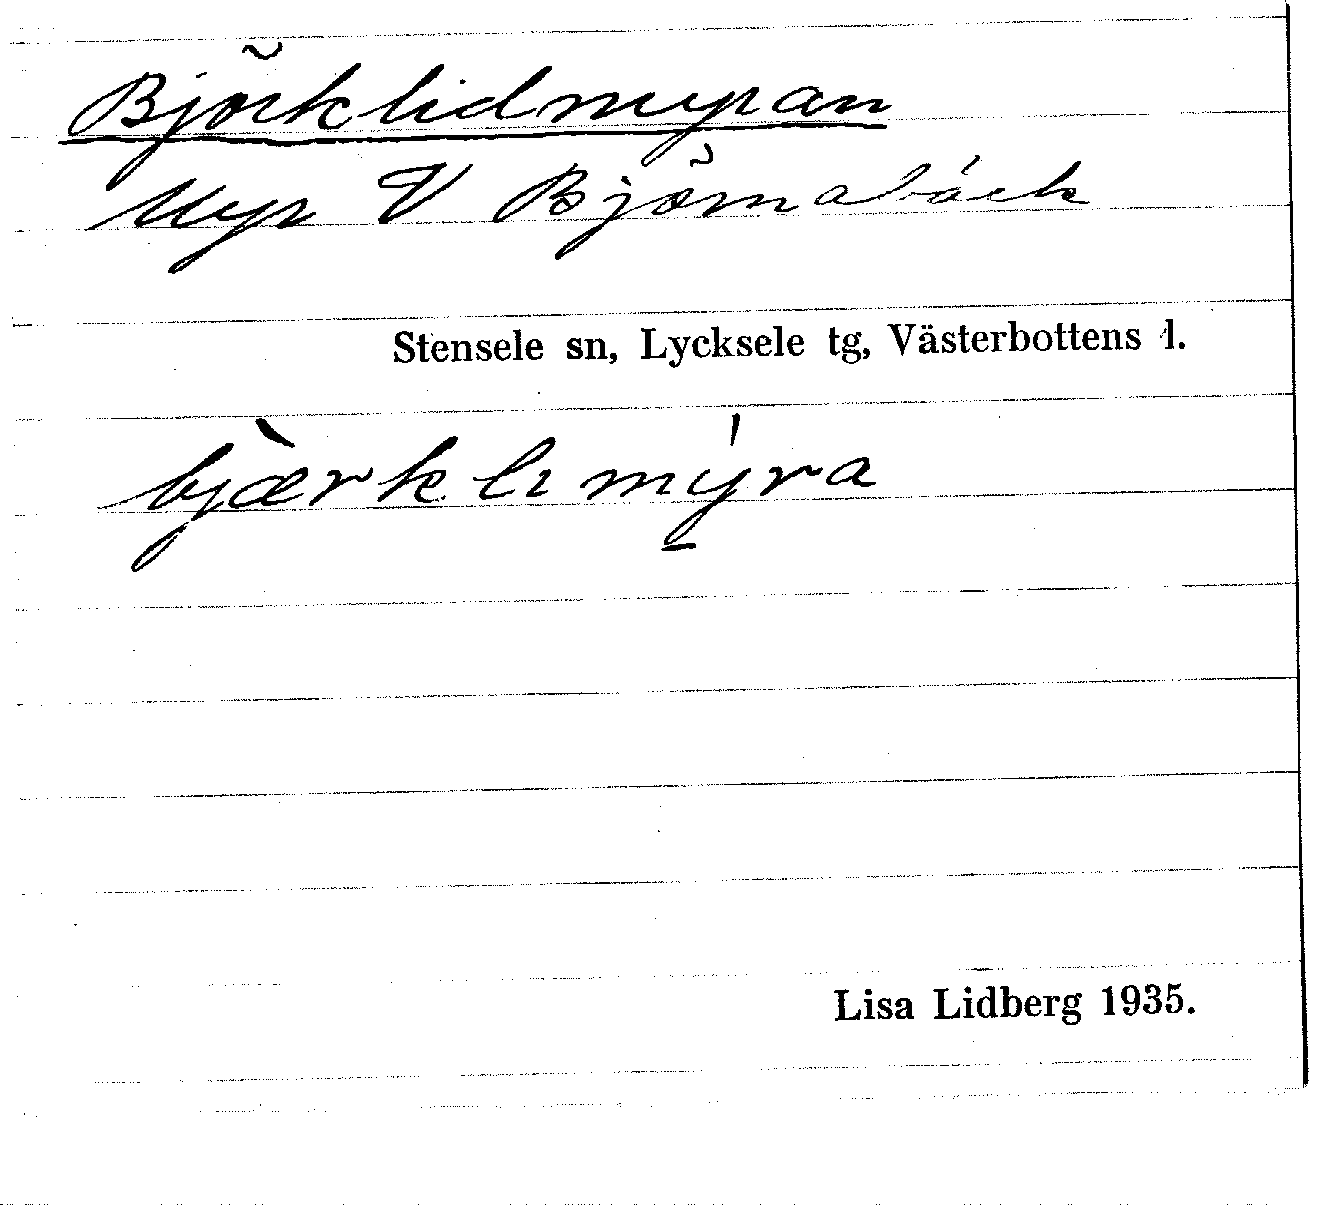 Björklidmyran
Myr V Björnabäck
Stensele sn, Lycksele tg, Västerbottens l.
bjæ̀rklımýra
Lisa Lidberg 1935.